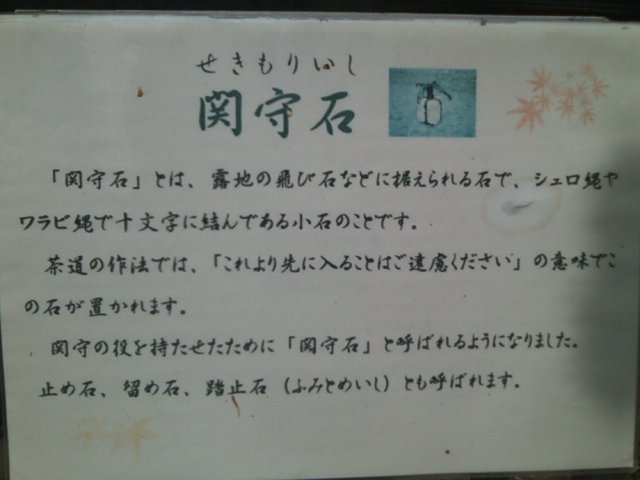 せきもりいし
関守石
「関守石」とは、露地の飛び石などに据えられる石で、シェロ縄や
ワラビ縄で十文字に結んである小石のことです。
茶道の作法では、「これより先に入ることはご遠慮ください」の意味でこ
の石が置かれます。
関守の役を持たせたために「関守石」と呼ばれるようになりました。
止め石、留め石、踏止石（ふみとめいし）とも呼ばれます。